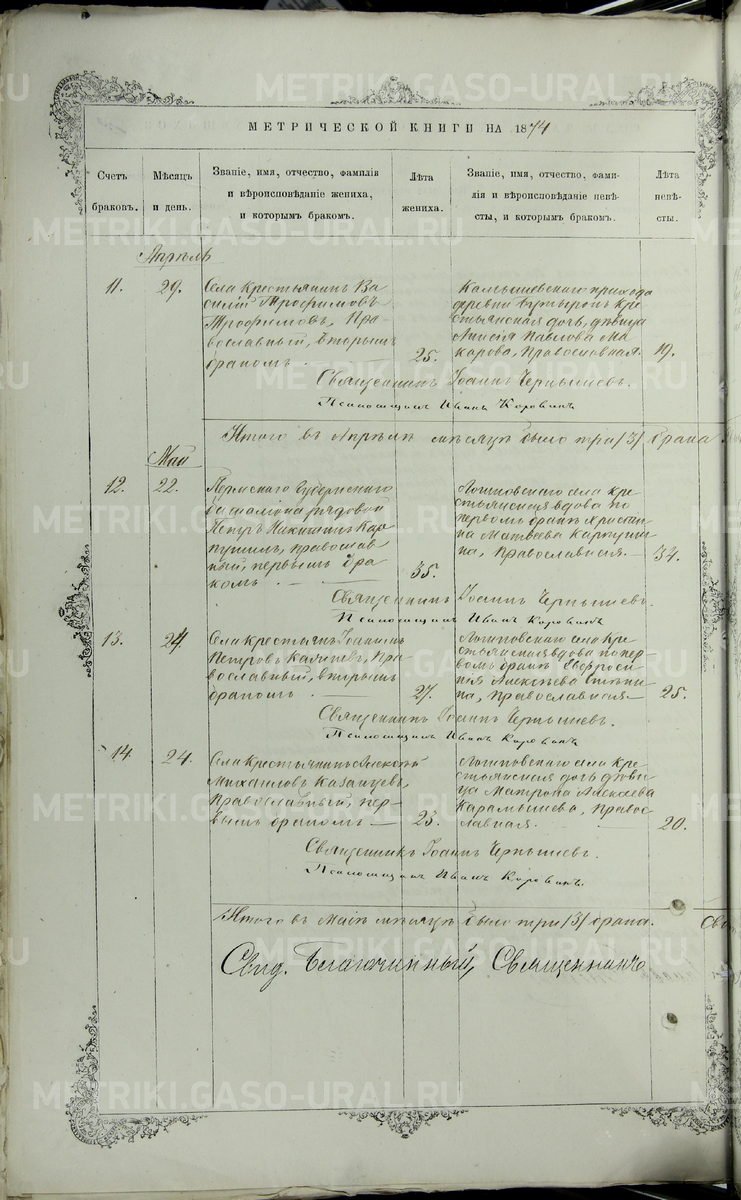 МЕТРИЧЕСКОЙ КНИГИ НА 1874
Счетъ браковъ.
Мѣсяцъ и день.
Званіе, имя, отчество, фамилія
и вѣроисповѣданіе жениха,
и которымъ бракомъ.
Лѣта жениха.
Званіе, имя, отчество, фами-
лія и вѣроисповѣданіе невѣ-
сты, и которымъ бракомъ.
Лѣта невѣ-
сты.
Апрѣль
11. 29.
Села крестьянинъ Ва
силій Трофимовъ
Трофимовъ, Пра-
вославный, вторымъ
бракомъ. 25.
Камышевскаго прихода
деревни кре
стьянская дочь, дѣвица
Анисія Павлова Ма
карова, Православная. 19.
Священникъ Іоаннъ Чернышевъ.
Псаломщикъ Иванъ Коровинъ
Итого въ Апрѣлѣ мѣсяцѣ было три /3/ брака
Май
12. 22.
Пермскаго Губернскаго
баталіона рядовой
Петръ Никитинъ Кар
пушинъ, православ
ный, первымъ бра
комъ. 35.
Логиновскаго села кре
стьянская вдова по
первомъ бракѣ Христи
на Матвеева
на, Православная. 34.
Священникъ Іоаннъ Чернышевъ.
Псаломщикъ Иванъ Коровинъ
13. 24.
Села крестьянъ Іоакимъ
Петровъ Пра
вославный, вторымъ
бракомъ 27.
Логиновскаго села кре
стьянская вдова по пер
вомъ бракѣ Евфроси
нія Алексѣева
на, Православная 25.
Священникъ Іоаннъ Чернышевъ.
Псаломщикъ Иванъ Коровинъ
14. 24.
Села крестьянинъ Алексѣй
Михаиловъ Казанцевъ,
Православный, пер-
вымъ бракомъ 23.
Логиновскаго села кре
стьянская дочь дѣви
ца Матрона Алексеева
Карамышева, Правос
лавная. 20.
Священникъ Іоаннъ Чернышевъ.
Псаломщикъ Иванъ Коровинъ.
Итого въ Маѣ мѣсяцѣ было три /3/ брака.
Свид. Благочинный, Священникъ
METRIKI.GASO-URAL.RU